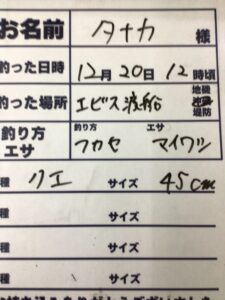 お名前 タナカ 様
釣った日時 12月20日12時頃
釣った場所 エビス渡船 地磯 沖磯 堤防
釣り方 エサ 釣り方 フカセ エサ マイワシ
種 クエ サイズ 45cm
種 サイズ
種 サイズ
種 サイズ